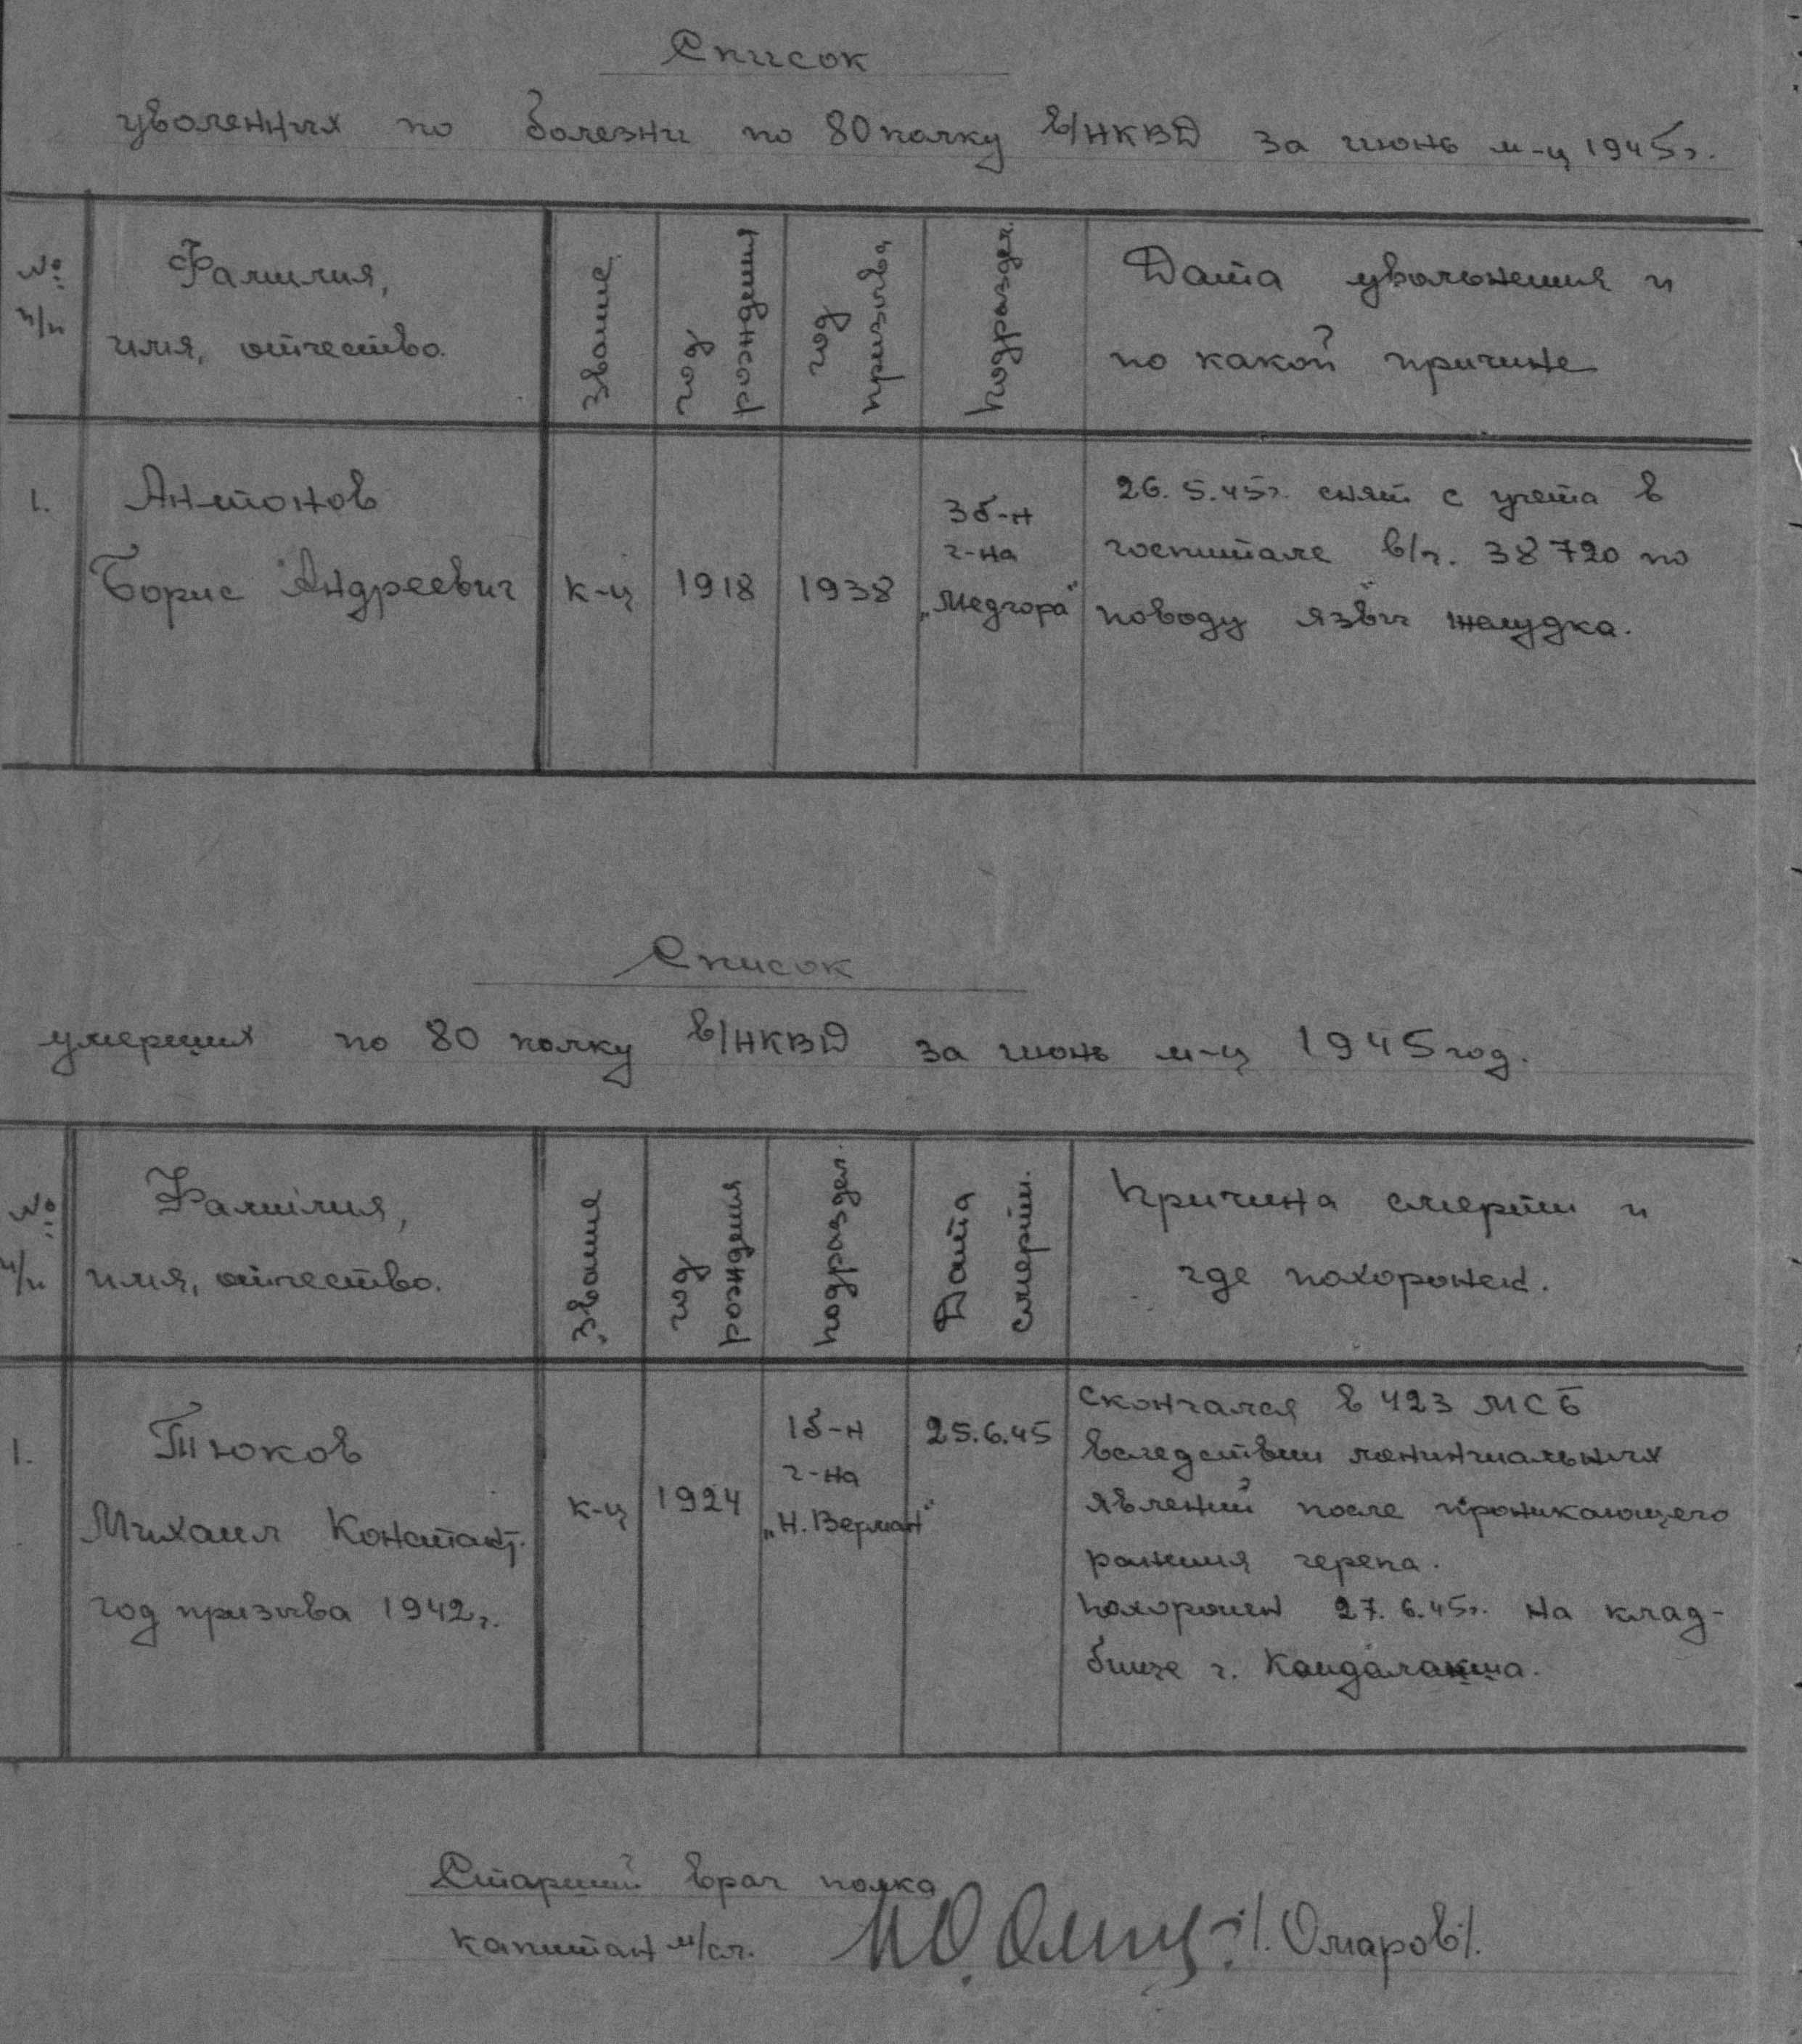 Список
уволенных по болезни по 80 полку в/НКВД за июнь м-ц 1945г.
№ п/п
Фамилия,
имя, отчество.
Звание
год рождения
год призыва
Подраздел.
Дата увольнения и
по какой причине
1.
Антонов
Борис Андреевич
к-ц
1918
1938
3 б-н
г-на
„Медгора"
26.5.45г. снят с учета в
госпитале в/ч. 38720 по
поводу язвы желудка.
Список
умерших по 80 полку в/НКВД за июнь м-ц 1945 год.
№ п/п
Фамилия,
имя, отчество.
Звание
год рождения
Подраздел.
Дата смерти.
Причина смерти и
где похоронен.
1.
Тюков
Михаил Констант.
год призыва 1942г.
к-ц
1924
1 б-н
г-на
„Н. Верман"
25.6.45
Скончался в 423 МСБ
вследствии менингиальных
явлений после проникающего
ранения черепа.
Похоронен 27.6.45г. на клад-
бище г. Кандалакша.
Старший врач полка
капитан м/сл. /. Омаров/.